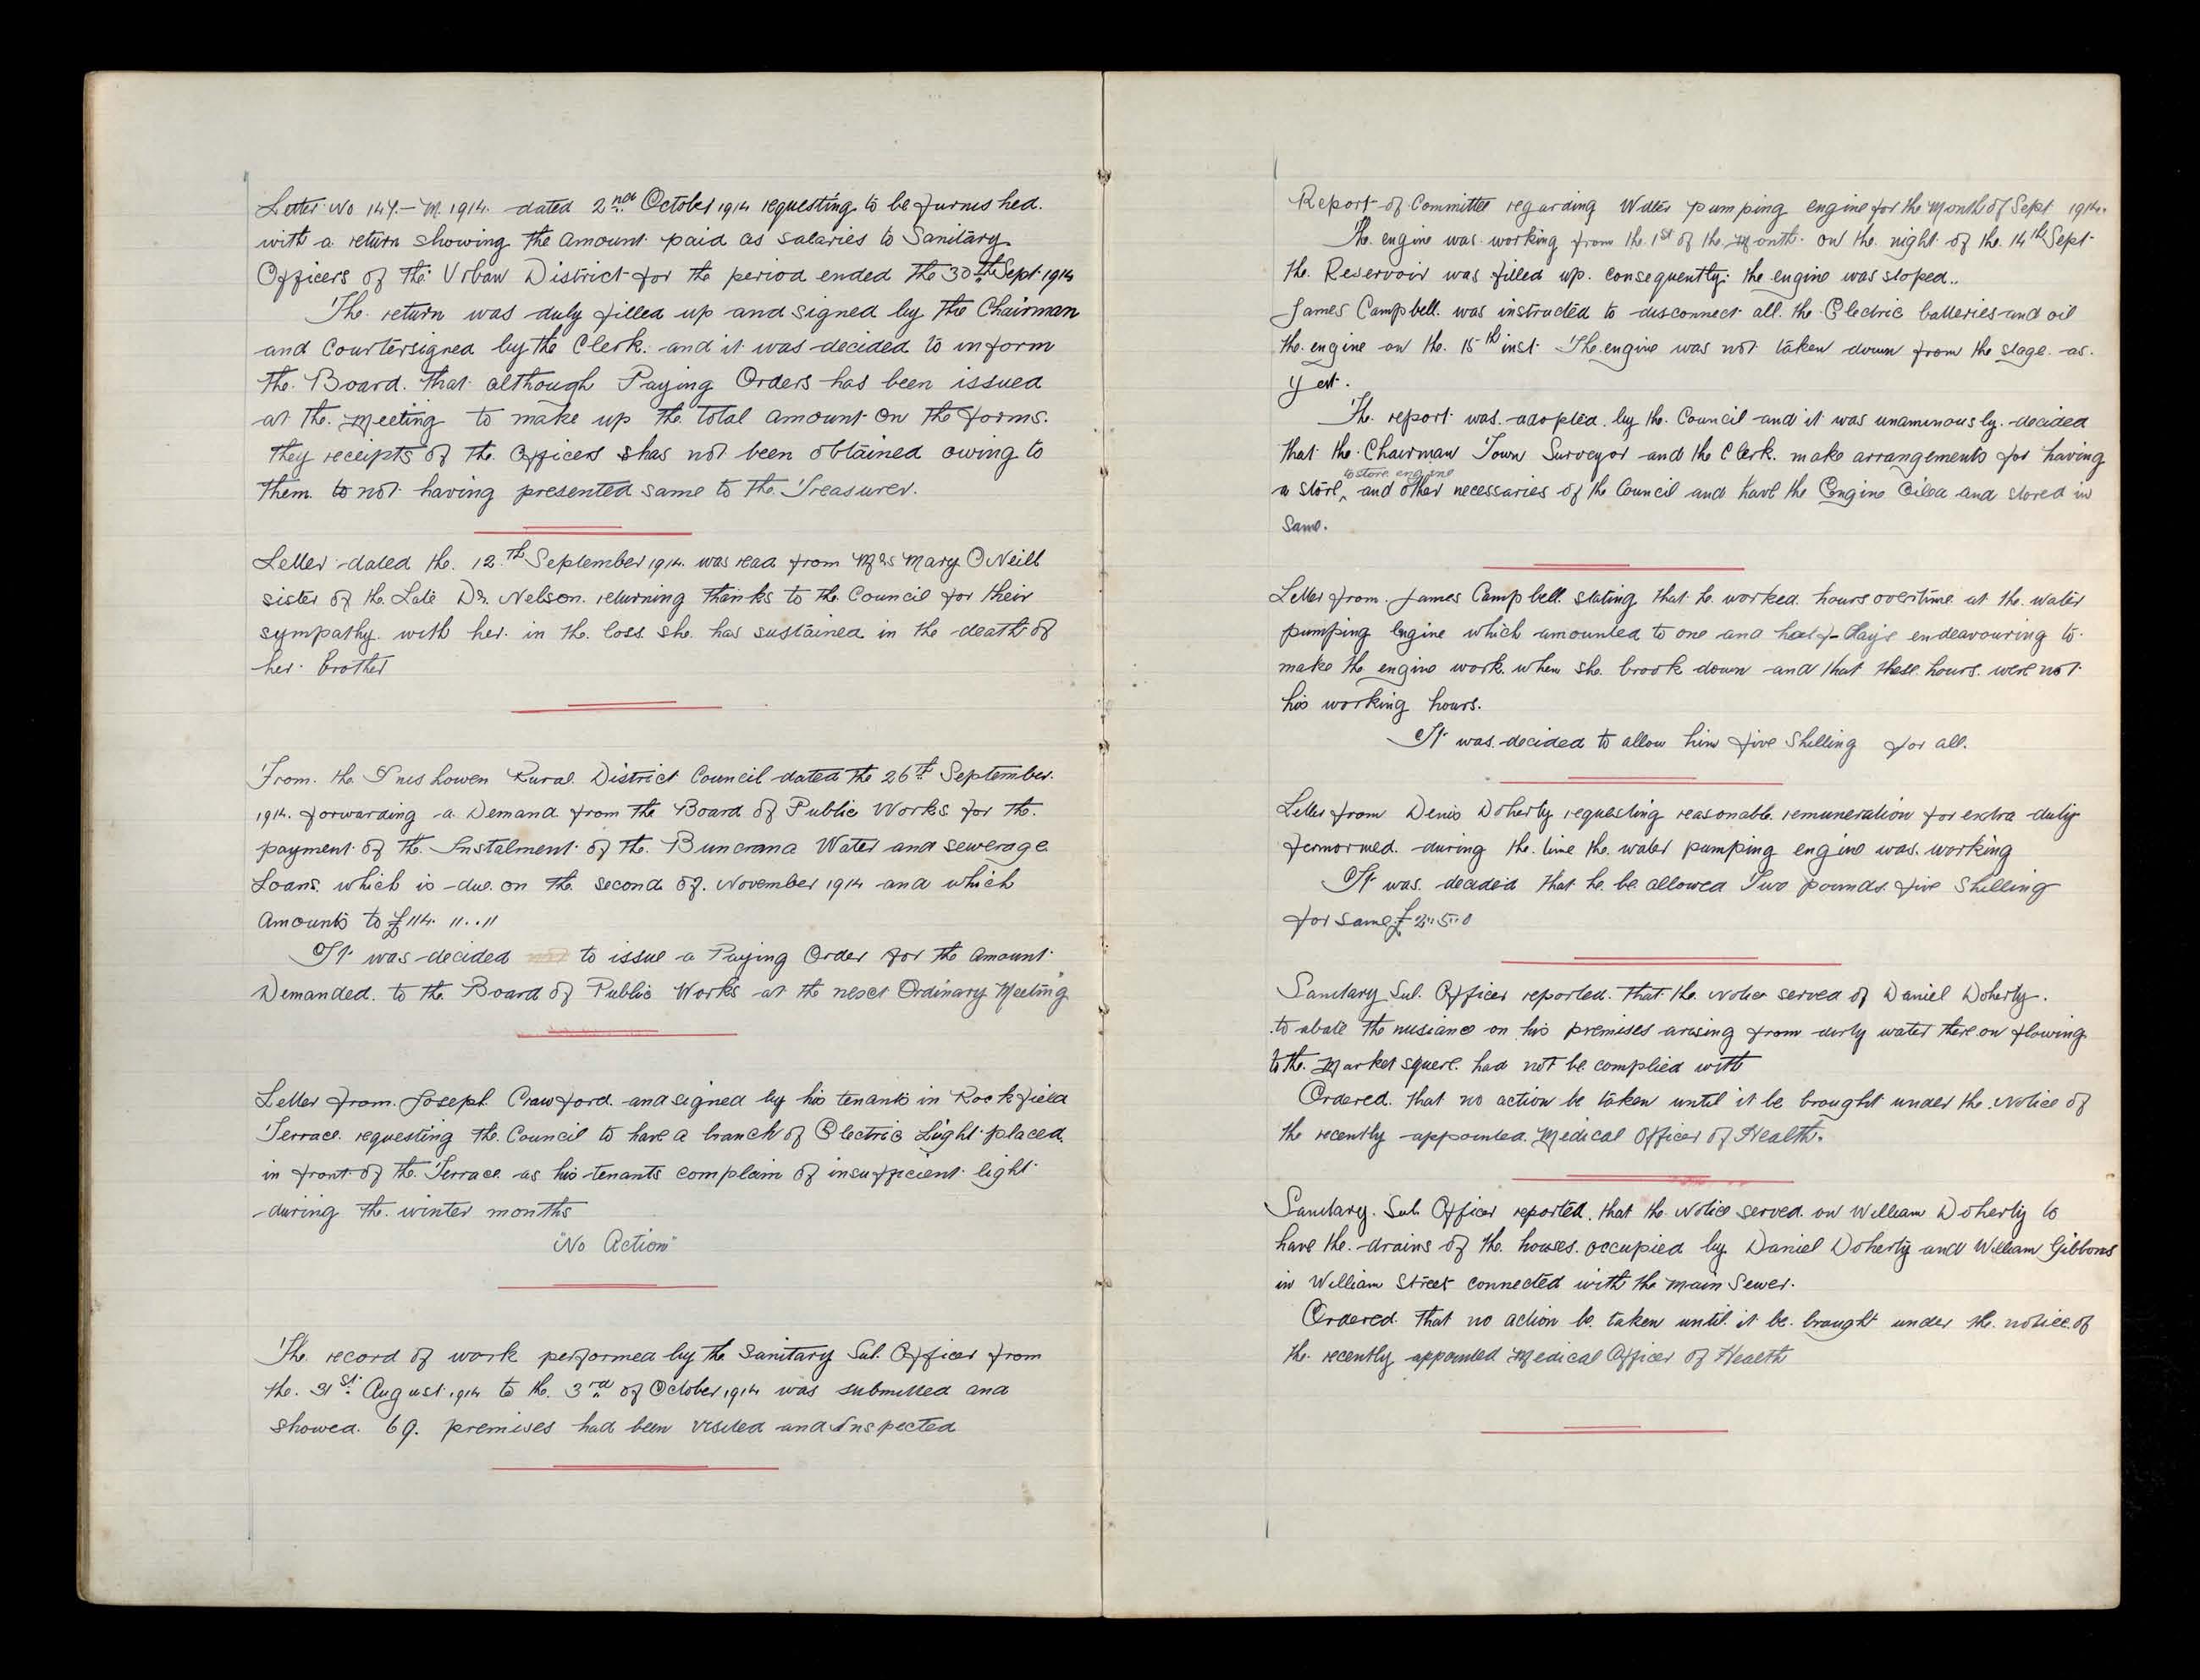 Letter No 147.-M. 1914. dated 2nd October 1914 requesting to be furnished.
with a return showing the amount paid as salaries to Sanitary
Officers of the Urban District for the period ended the 30th Sept. 1914
The return was duly filled up and signed by the Chairman
and Courtersigned by the Clerk. and it was decided to inform
the Board. that although Paying Orders has been issued
at the Meeting to make up the total amount on the forms.
they receipts of the Officers has not been obtained owing to
them to not having presented same to the Treasurer.
Letter dated the 12th September 1914. was read from Mrs Mary O'Neill
sister of the Late Dr. Nelson. returning thanks to the Council for their
sympathy with her in the loss she has sustained in the death of
her brother
From the Inishowen Rural District Council dated the 26th September.
1914. forwarding a Demand from the Board of Public Works for the
payment of the Instalment of the Buncrana Water and sewerage
Loans. which is due on the second of November 1914 and which
amounts to £114. 11..11
It was decided to issue a Paying Order for the amount
Demanded. to the Board of Public Works at the next Ordinary Meeting
Letter from Joseph Crawford. and signed by his tenants in Rockfield
Terrace requesting the Council to have a branch of Electric Light placed
in front of the Terrace as his tenants complain of insufficient light
during the winter months
"No Action"
The record of work performed by the Sanitary Sub. Officer from
the 31st August 1914 to the 3rd of October 1914 was submitted and
showed. 69. premises had been visited and Inspected
Report of Committee regarding Water pumping engine for the Month of Sept 1914.
The engine was working from the 1st of the Month. On the night of the 14th Sept
the Reservoir was filled up. consequently the engine was stoped..
James Campbell. was instructed to disconnect all the Electric batteries and oil
the engine on the 15th inst. The engine was not taken down from the stage as
yet.
The report was adopted by the Council and it was unaminously decided
that the Chairman Town Surveyor and the Clerk. make arrangements for having
to store engine
a store, and other necessaries of the Council and have the Engine Oiled and stored in
same.
Letter from James Campbell stating that he worked hours overtime at the water
pumping Engine which amounted to one and half days endeavouring to
make the engine work when she brook down and that these hours were not
his working hours.
It was decided to allow him five Shilling for all.
Letter from Denis Doherty requesting reasonable remuneration for extra duty
fermormed during the time the water pumping engine was working
It was decided that he be allowed Two pounds five Shilling
for same £2..5..0
Sanitary Sub. Officer reported. that the Notice served of Daniel Doherty.
to abate the nusiance on his premises arising from dirty water there on flowing
to the Market square had not be complied with
Ordered. that no action be taken until it be brought under the Notice of
the recently appointed Medical Officer of Health.
Sanitary Sub. Officer reported. that the Notice served on William Doherty to
have the drains of the houses occupied by Daniel Doherty and William Gibbons
in William Street connected with the Main Sewer.
Ordered that no action be taken until it be brought under the notice of
the recently appointed Medical Officer of Health